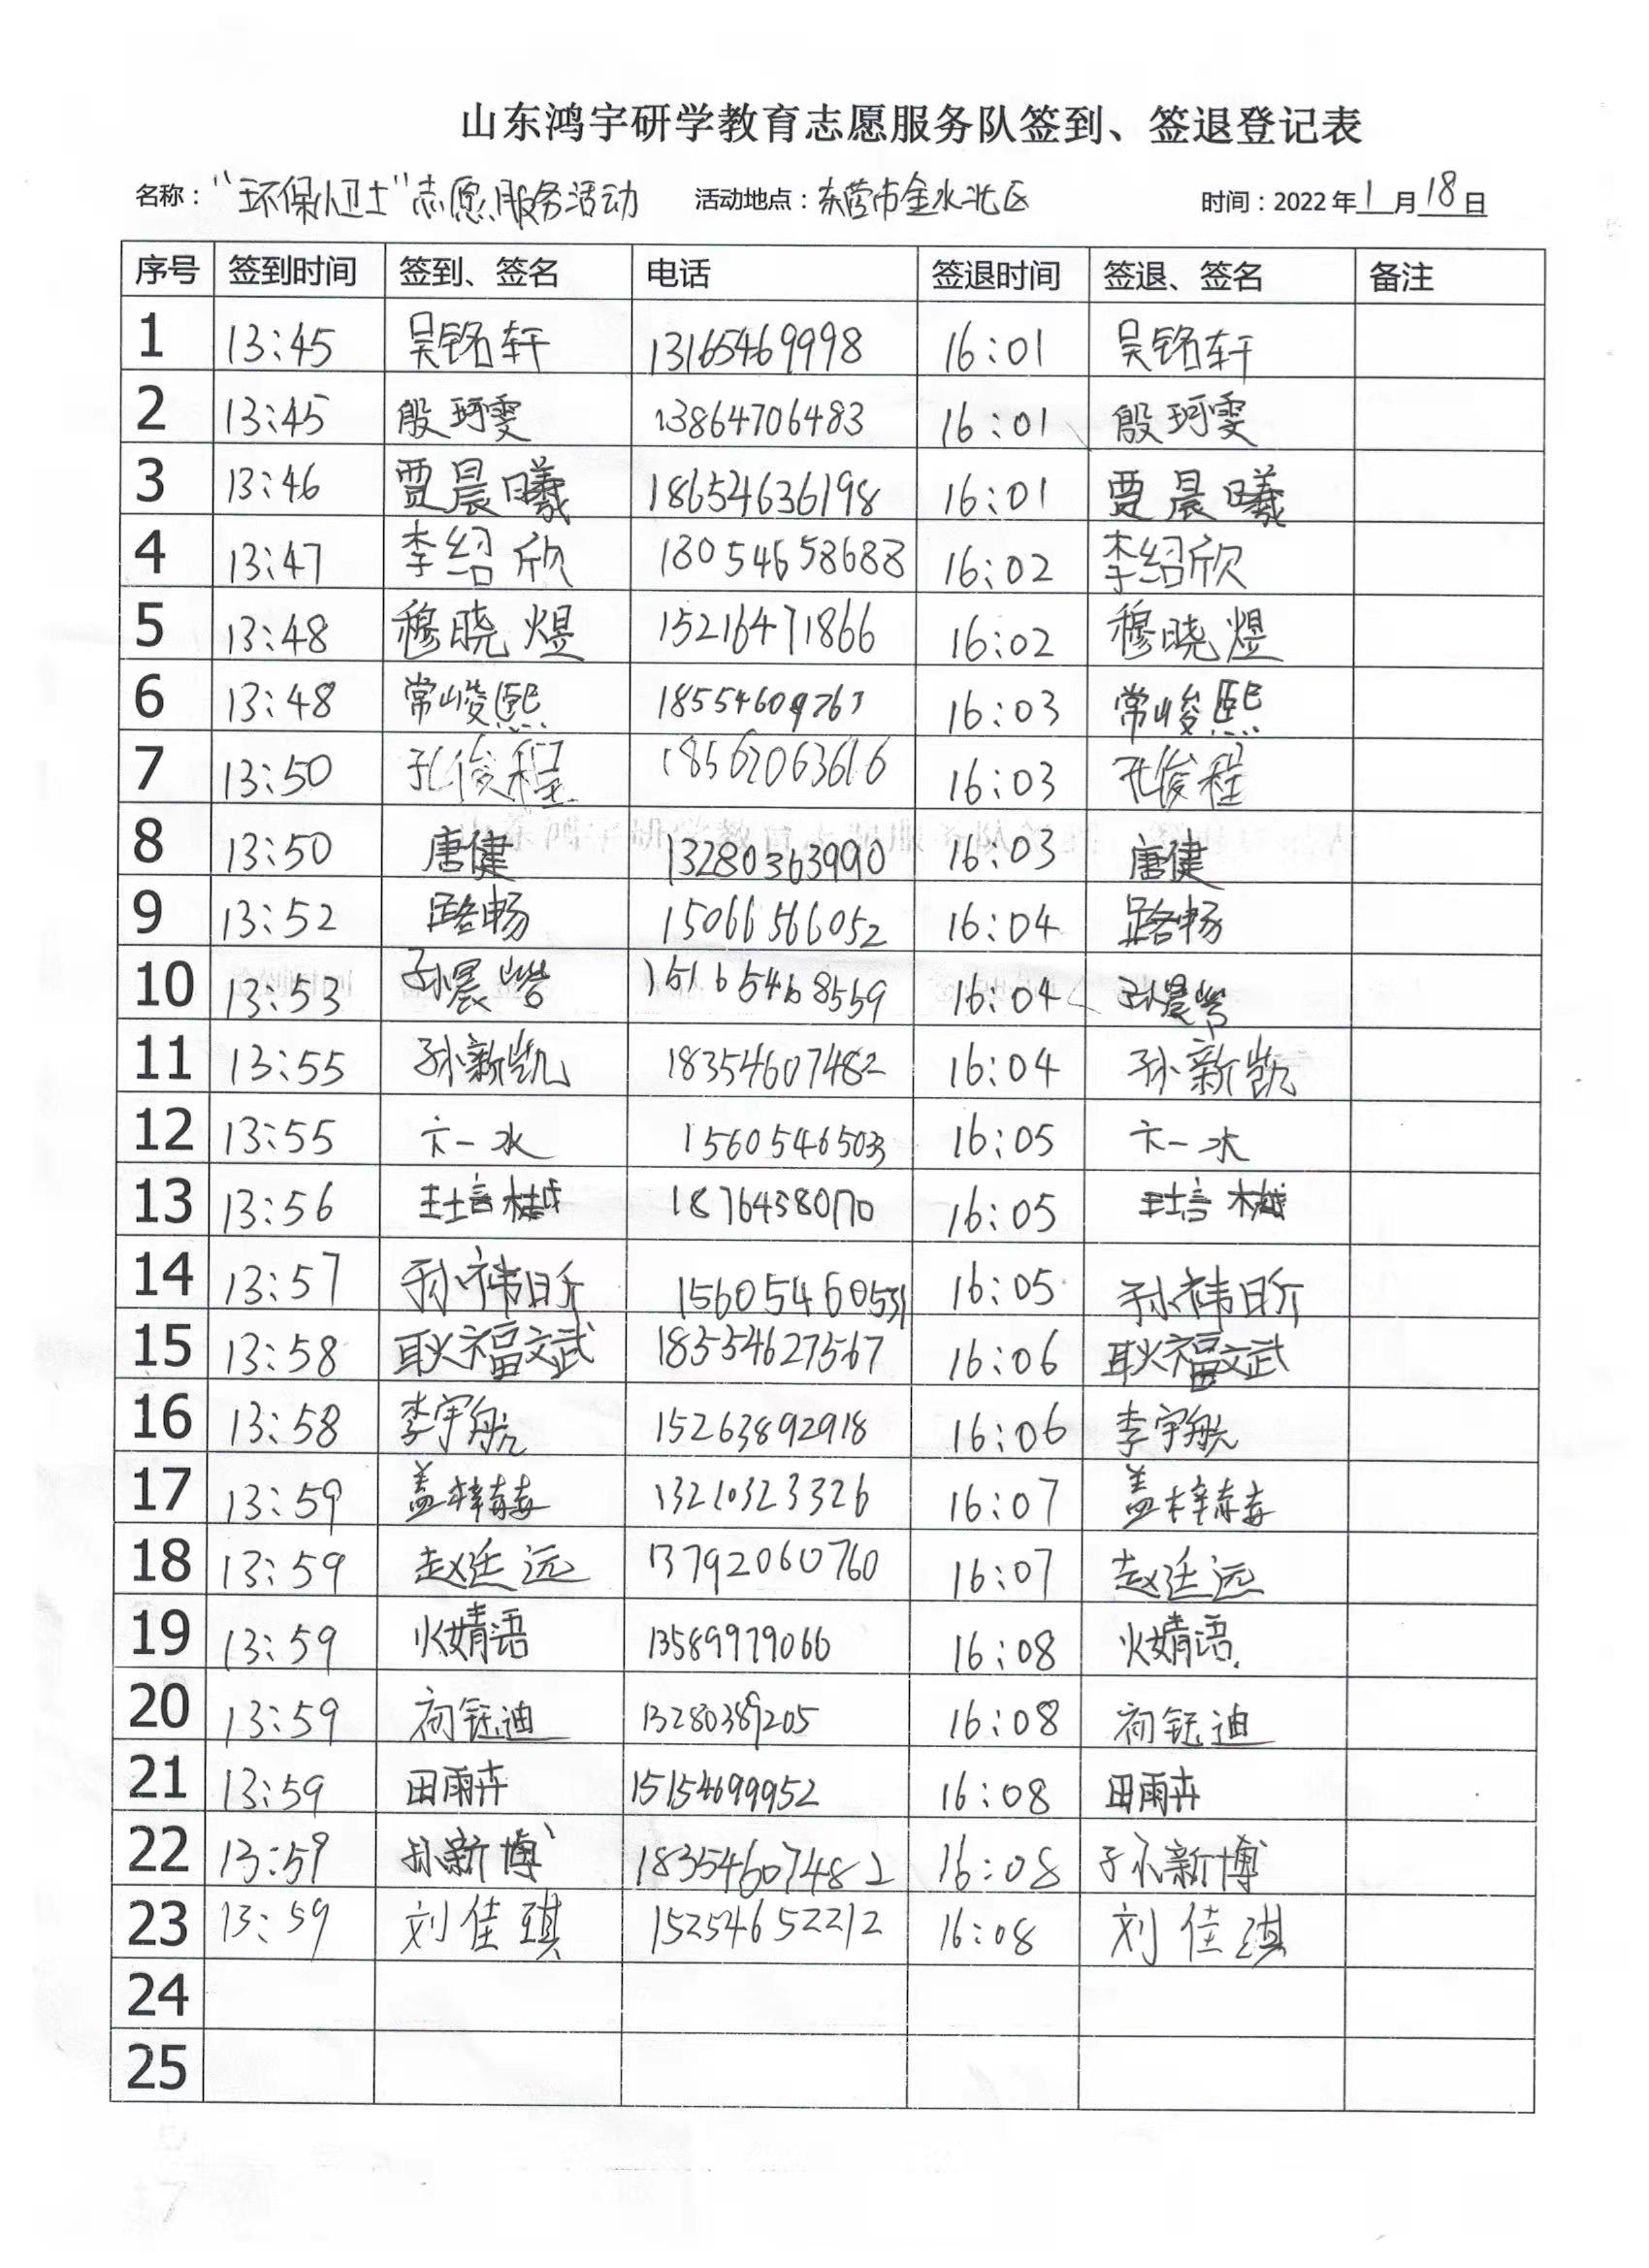 山东鸿宇研学教育志愿服务队签到、签退登记表
名称：“环保小卫士”志愿服务活动 活动地点：东营市金水北区 时间：2022年1月18日
序号 签到时间 签到、签名 电话 签退时间 签退、签名 备注
1 13:45 吴铭轩 13165469998 16:01 吴铭轩
2 13:45 殷珂雯 13864706483 16:01 殷珂雯
3 13:46 贾晨曦 18654636198 16:01 贾晨曦
4 13:47 李绍欣 18054658688 16:02 李绍欣
5 13:48 穆晓煜 15216471866 16:02 穆晓煜
6 13:48 常峻熙 16:03 常峻熙
7 13:50 孔俊程 18562063616 16:03 孔俊程
8 13:50 唐健 13280363990 16:03 唐健
9 13:52 路畅 15066566052 16:04 路畅
10 13:53 16:04
11 13:55 孙新凯 18354607482 16:04 孙新凯
12 13:55 一水 15605465033 16:05 一水
13 13:56 王培樾 18764580170 16:05 王培樾
14 13:57 孙祎昕 15605460531 16:05 孙祎昕
15 13:58 耿福文武 18554627567 16:06 耿福文武
16 13:58 李宇航 15263892918 16:06 李宇航
17 13:59 盖梓毓 13210323326 16:07 盖梓毓
18 13:59 赵廷远 13792060760 16:07 赵廷远
19 13:59 婧语 13589979066 16:08 婧语
20 13:59 初钰迪 13280389205 16:08 初钰迪
21 13:59 田雨卉 15154699952 16:08 田雨卉
22 13:59 孙新博 18354607482 16:08 孙新博
23 13:59 刘佳琪 15254652212 16:08 刘佳琪
24
25